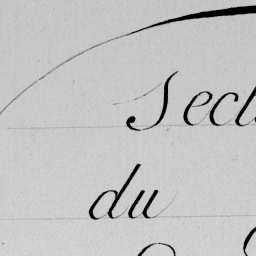 Sect
du